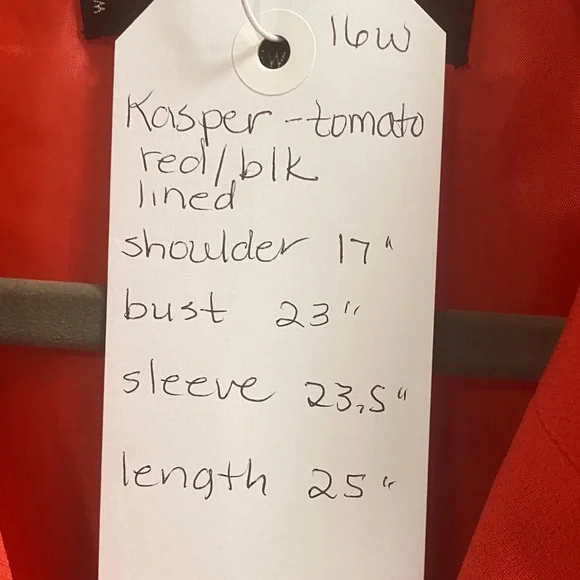 16W
Kasper - tomato
red/blk
lined
shoulder 17"
bust 23"
sleeve 23.5"
length 25"